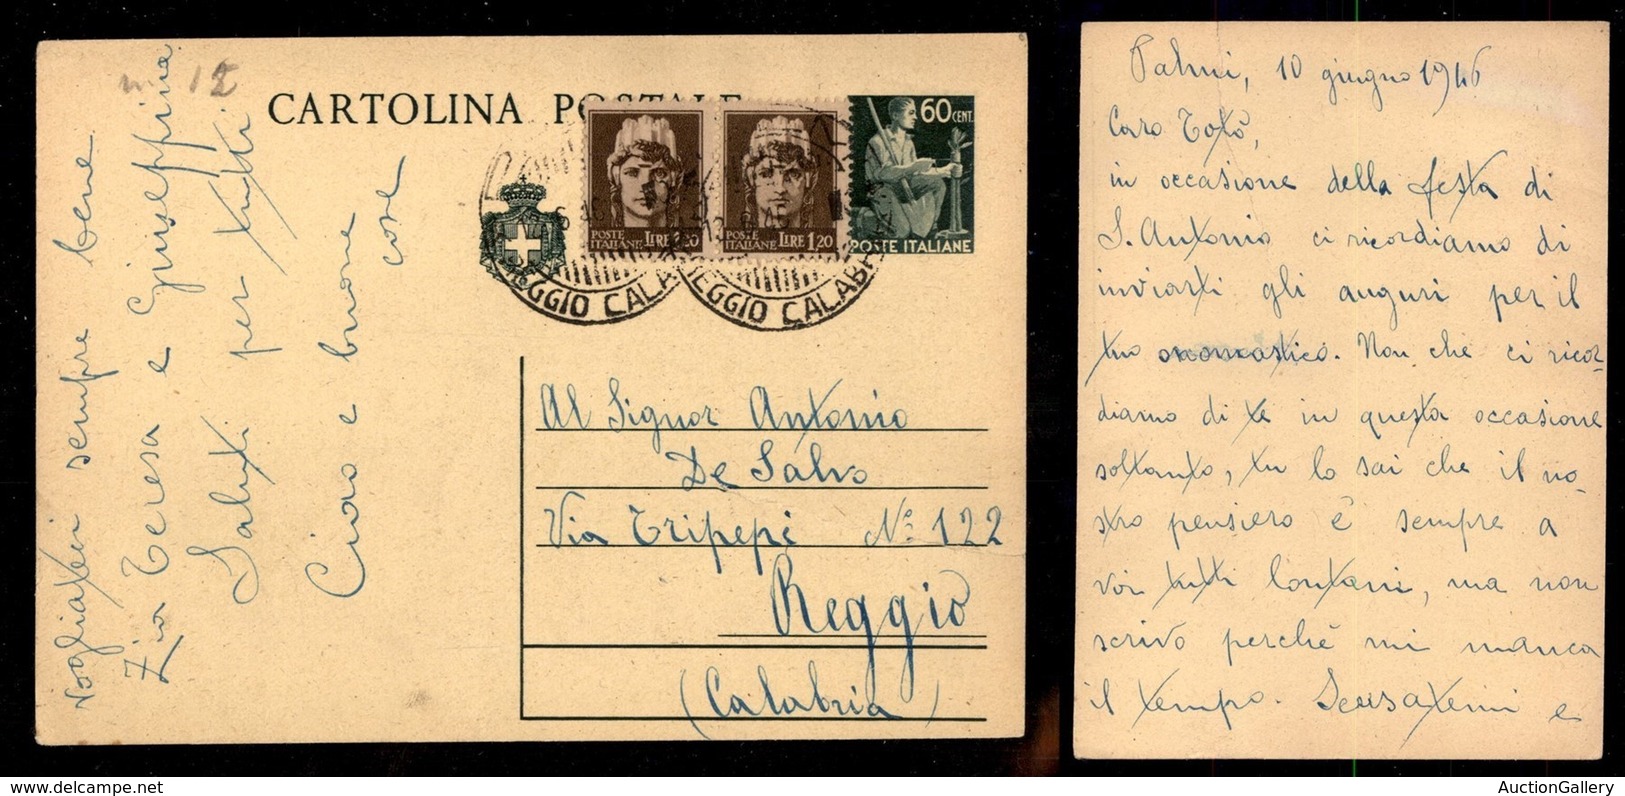 n. 12
CARTOLINA POSTALE
60 CENT.
POSTE ITALIANE LIRE 1,20
POSTE ITALIANE LIRE 1,20
POSTE ITALIANE
REGGIO CALAB
REGGIO CALABR
Al Signor Antonio
De Salvo
Via Tripepi N.º 122
Reggio
(Calabria)
vogliatei sempre bene
Zia Teresa e Giuseppina
Saluti per tutti
Ciao e buone
cose
Palmi, 10 giugno 1946
Caro Totò,
in occasione della festa di
S. Antonio ci ricordiamo di
inviarti gli auguri per il
tuo onomastico. Non che ci ricor-
diamo di te in questa occasione
soltanto, tu lo sai che il no-
stro pensiero è sempre a
voi tutti lontani, ma non
scrivo perché mi manca
il tempo. Scusatemi e
AuctionGallery